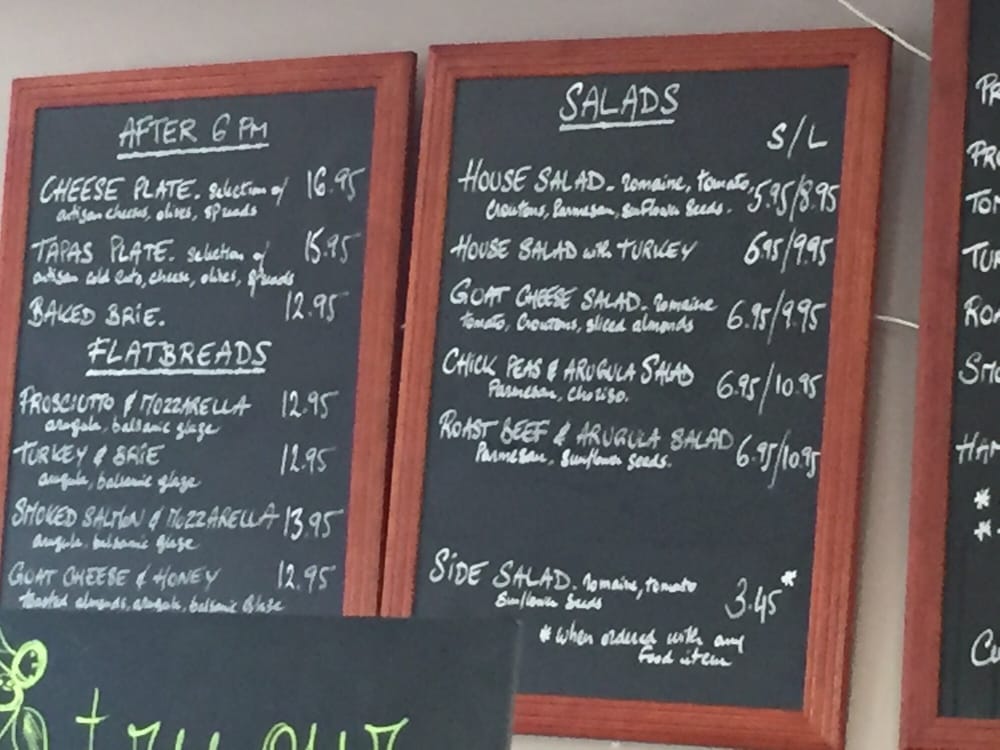 AFTER 6 PM
CHEESE PLATE. Selection of 16.95
artisan cheeses, olives, spreads
TAPAS PLATE. Selection of 15.95
artisan cold cuts, cheese, olives, spreads
BAKED BRIE. 12.95
FLATBREADS
PROSCIUTTO & MOZZARELLA 12.95
arugula, balsamic glaze
TURKEY & BRIE 12.95
arugula, balsamic glaze
SMOKED SALMON & MOZZARELLA 13.95
arugula, balsamic glaze
GOAT CHEESE & HONEY 12.95
toasted almonds, arugula, balsamic glaze
try our
SALADS
S/L
HOUSE SALAD. romaine, tomato, 5.95/8.95
Croutons, Parmesan, Sunflower Seeds.
HOUSE SALAD with TURKEY 6.95/9.95
GOAT CHEESE SALAD. romaine 6.95/9.95
tomato, Croutons, sliced almonds
CHICK PEAS & ARUGULA SALAD 6.95/10.95
Parmesan, Chorizo.
ROAST BEEF & ARUGULA SALAD 6.95/10.95
Parmesan, Sunflower Seeds.
SIDE SALAD. romaine, tomato 3.45*
Sunflower Seeds
* when ordered with any
Food item
PR
PRO
TOM
TUR
ROA
SMO
HAM
*
*
CU